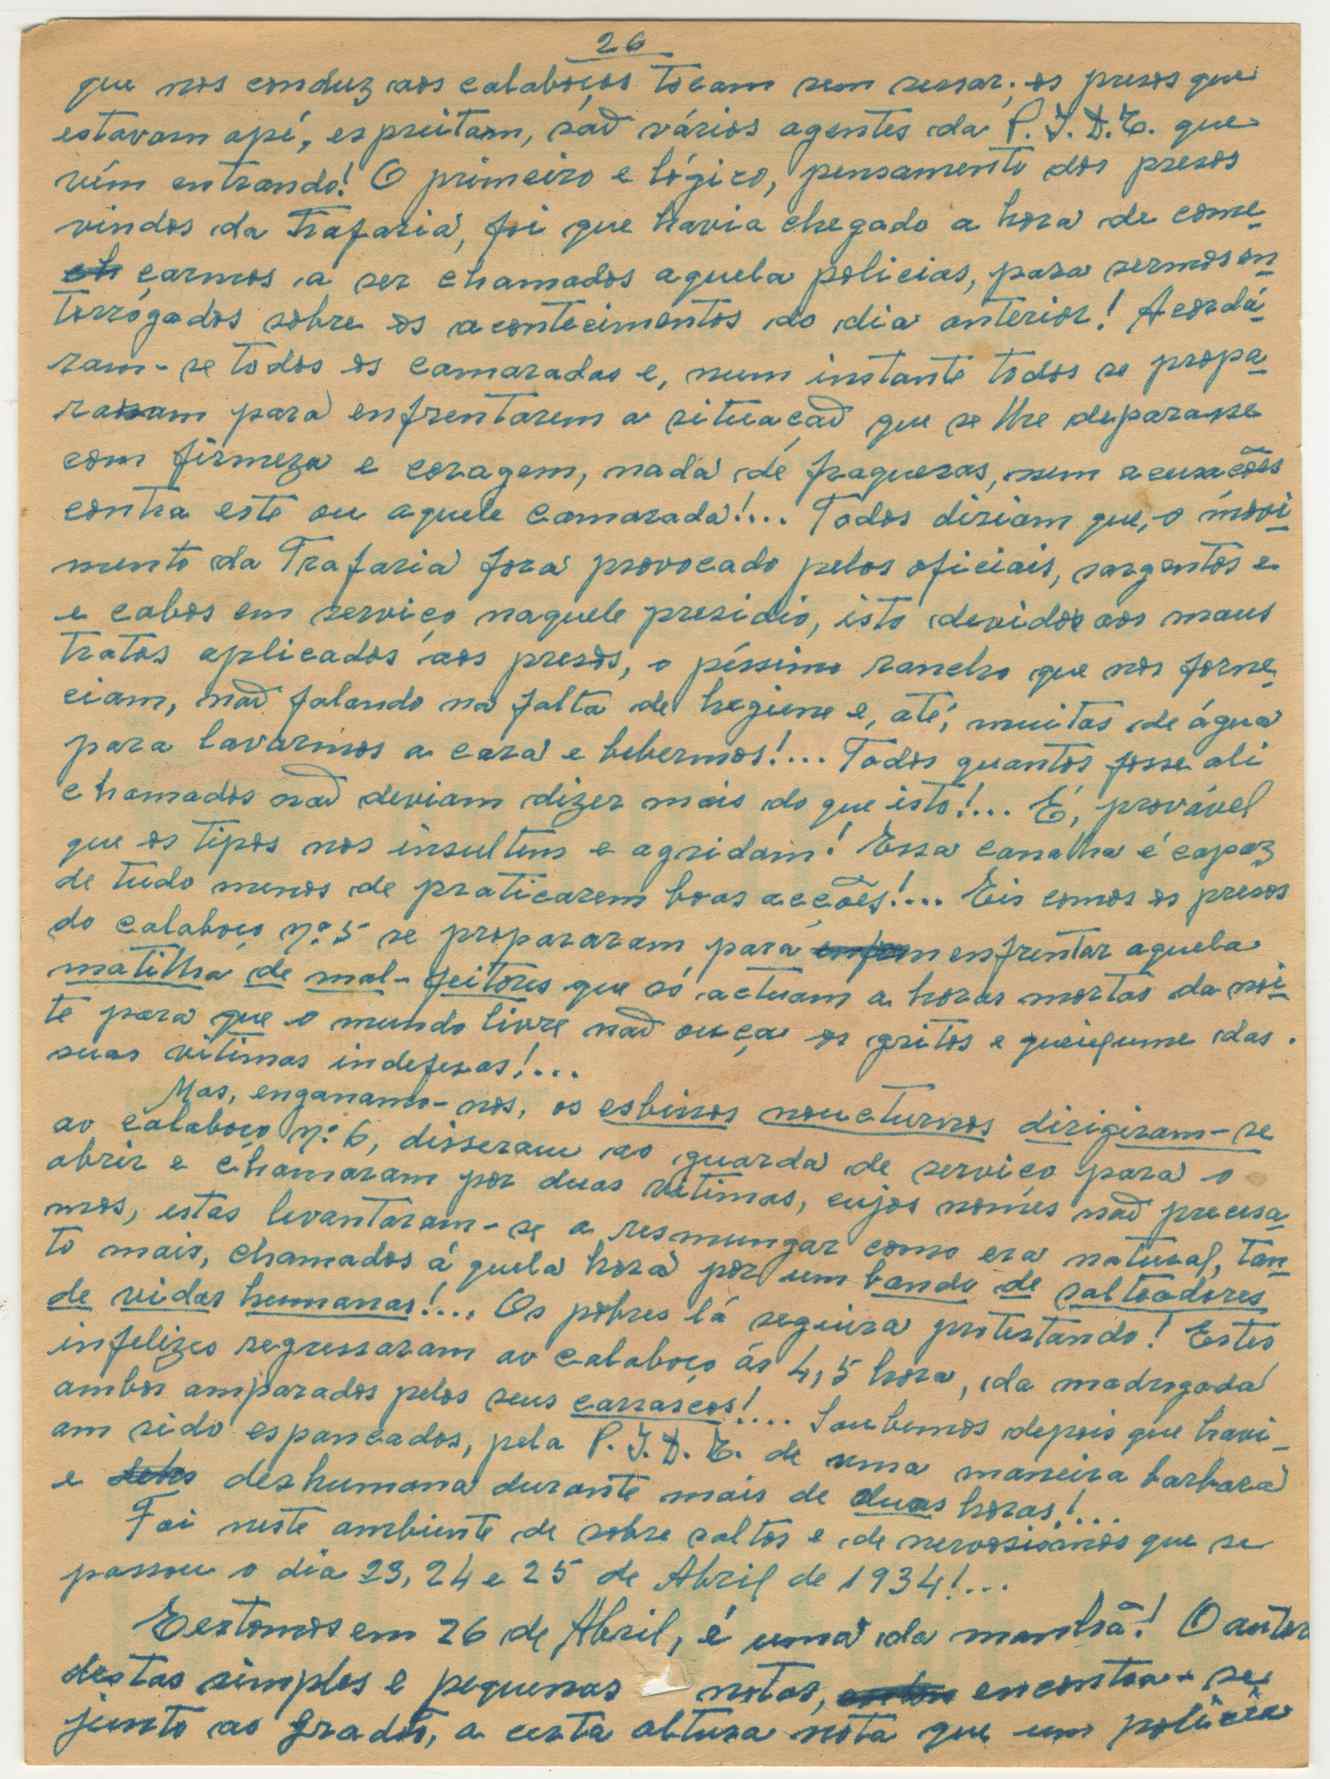 26
que nos conduz aos calaboços tocam sem sessar; os presos que
estavam apé, espreitam, são vários agentes da P.I.D.E. que
vém entrando! O primeiro e lógico, pensamento dos presos
vindos da Trafaria, foi que havia chegado a hora de come-
çarmos a ser chamados aquela policias, para sermos en-
torrógados sobre os acontecimentos do dia anterior! Acordá-
ram-se todos os camaradas e, num instante todos se propa-
raram para enfrentarem a situação que se lhe deparasse
com firmeza e coragem, nada de fraquesas, nem acusações
contra este ou aquele camarada!... Todos diriam que, o movi-
mento da Trafaria fora provocado pelos oficiais, sargentos e
e cabos em serviço naquele presidio, isto devidos aos maus
tratos aplicados aos presos, o péssimo rancho que nos forne-
ciam, não falando na falta de hegiene e, até, muitas de água
para lavarmos a cara e bebermos!... Todos quantos fosse ali
chamados não deviam dizer mais do que isto!... É, provável
que os tipos nos insultem e agridam! Essa canalha é capaz
de tudo menos de praticarem boas acções!... Eis comos os presos
do calaboço n.º 5 se propararam para enfrentar aquela
matilha de mal-feitores que só actuam a horas mortas da noi-
te para que o mundo livre não ouça os gritos e queixume das
suas vitimas indefesas!...
Mas, enganamo-nos, os esbirros noucturnos dirigiram-se
ao calaboço n.º 6, disseram ao guarda de serviço para o
abrir e chamaram por duas vitimas, cujos nomes não precisa-
mos, estas levantaram-se a resmungar como era natural, tan-
to mais, chamados á quela hora por um bando de saltoadores
de vidas humanas!... Os pobres lá seguira protestando! Estes
infelizes regressaram ao calaboço ás 4,5 hora, da madrugada
ambos amparados pelos seus carrascos!... Soubemos depois que havi-
am sido espancados, pela P.I.D.E. de uma maneira barbara
e deshumana durante mais de duas horas!...
Foi neste ambiente de sobre saltos e de nervosismos que se
passou o dia 23, 24 e 25 de Abril de 1934!...
Eestomos em 26 de Abril, é uma da manhã! O autor
destas simples e pequenas notas, encontra-se
junto ao grados, a certa altura nota que um policia